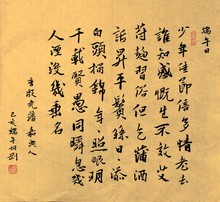 端午日
少年佳節倍多情老去
誰知感慨生不效艾
符趨習俗但祈蒲酒
話昇平鬢絲日日添
白頭榴錦年年照眼明
千載賢愚同瞬息幾
人湮沒幾垂名
唐殷堯藩 嘉興人
端午